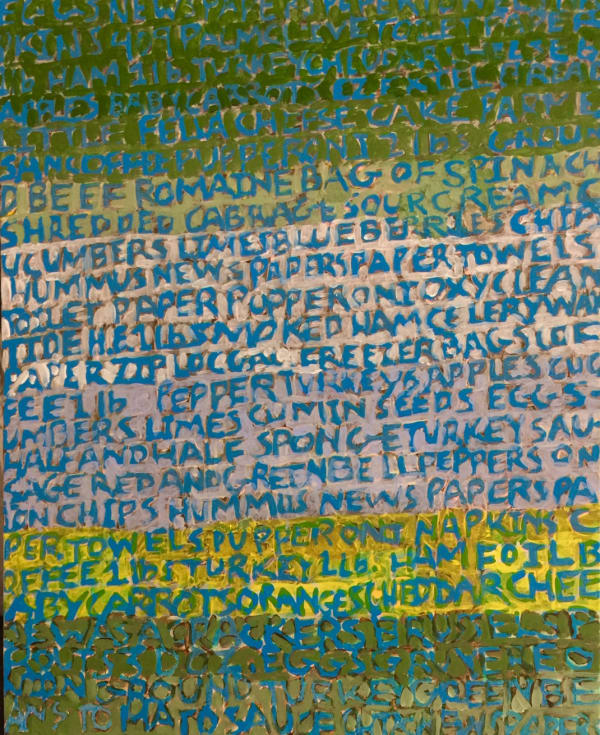 EGGS NEWSPAPER PUPPERONI
KINS PALMOLIVE TOILET PAPER
HAM 1lb. TURKEY CHEDDAR
APPLES BABY CARROTS EZEKIEL BREAD
LITTLE FELLA CHEESE CAKE FARM
PUPPERONI 3 lbs GROUN
D BEEF ROMAINE BAG OF SPINACH
SHREDDED CABBAGE SOUR CREAM C
UCUMBERS LIMES BLUEBERRIES CHIPS
HUMMUS NEWS PAPERS PAPER TOWELS
TOILET PAPER PUPPERONI OXYCLEAN
1lb SMOKED HAM CELERY WAX
PAPER FREEZER BAGS COF
FEE 1 lb PEPPER TURKEY APPLES CUC
UMBERS LIMES CUMIN SEEDS EGGS
HALF AND HALF SPONGE TURKEY SAU
SAGE RED AND GREEN BELL PEPPERS ON
ION CHIPS HUMMUS NEWS PAPERS PA
PER TOWELS PUPPERONI NAPKINS C
OFFEE 1 lb TURKEY 1 lb. HAM FOIL B
ABY CARROTS ORANGES CHEDDAR CHEE
SE CRACKERS
EGGS GRUYERE
GROUND TURKEY GREEN BE
ANS TOMATO SAUCE CHIPS NEWSPAPER